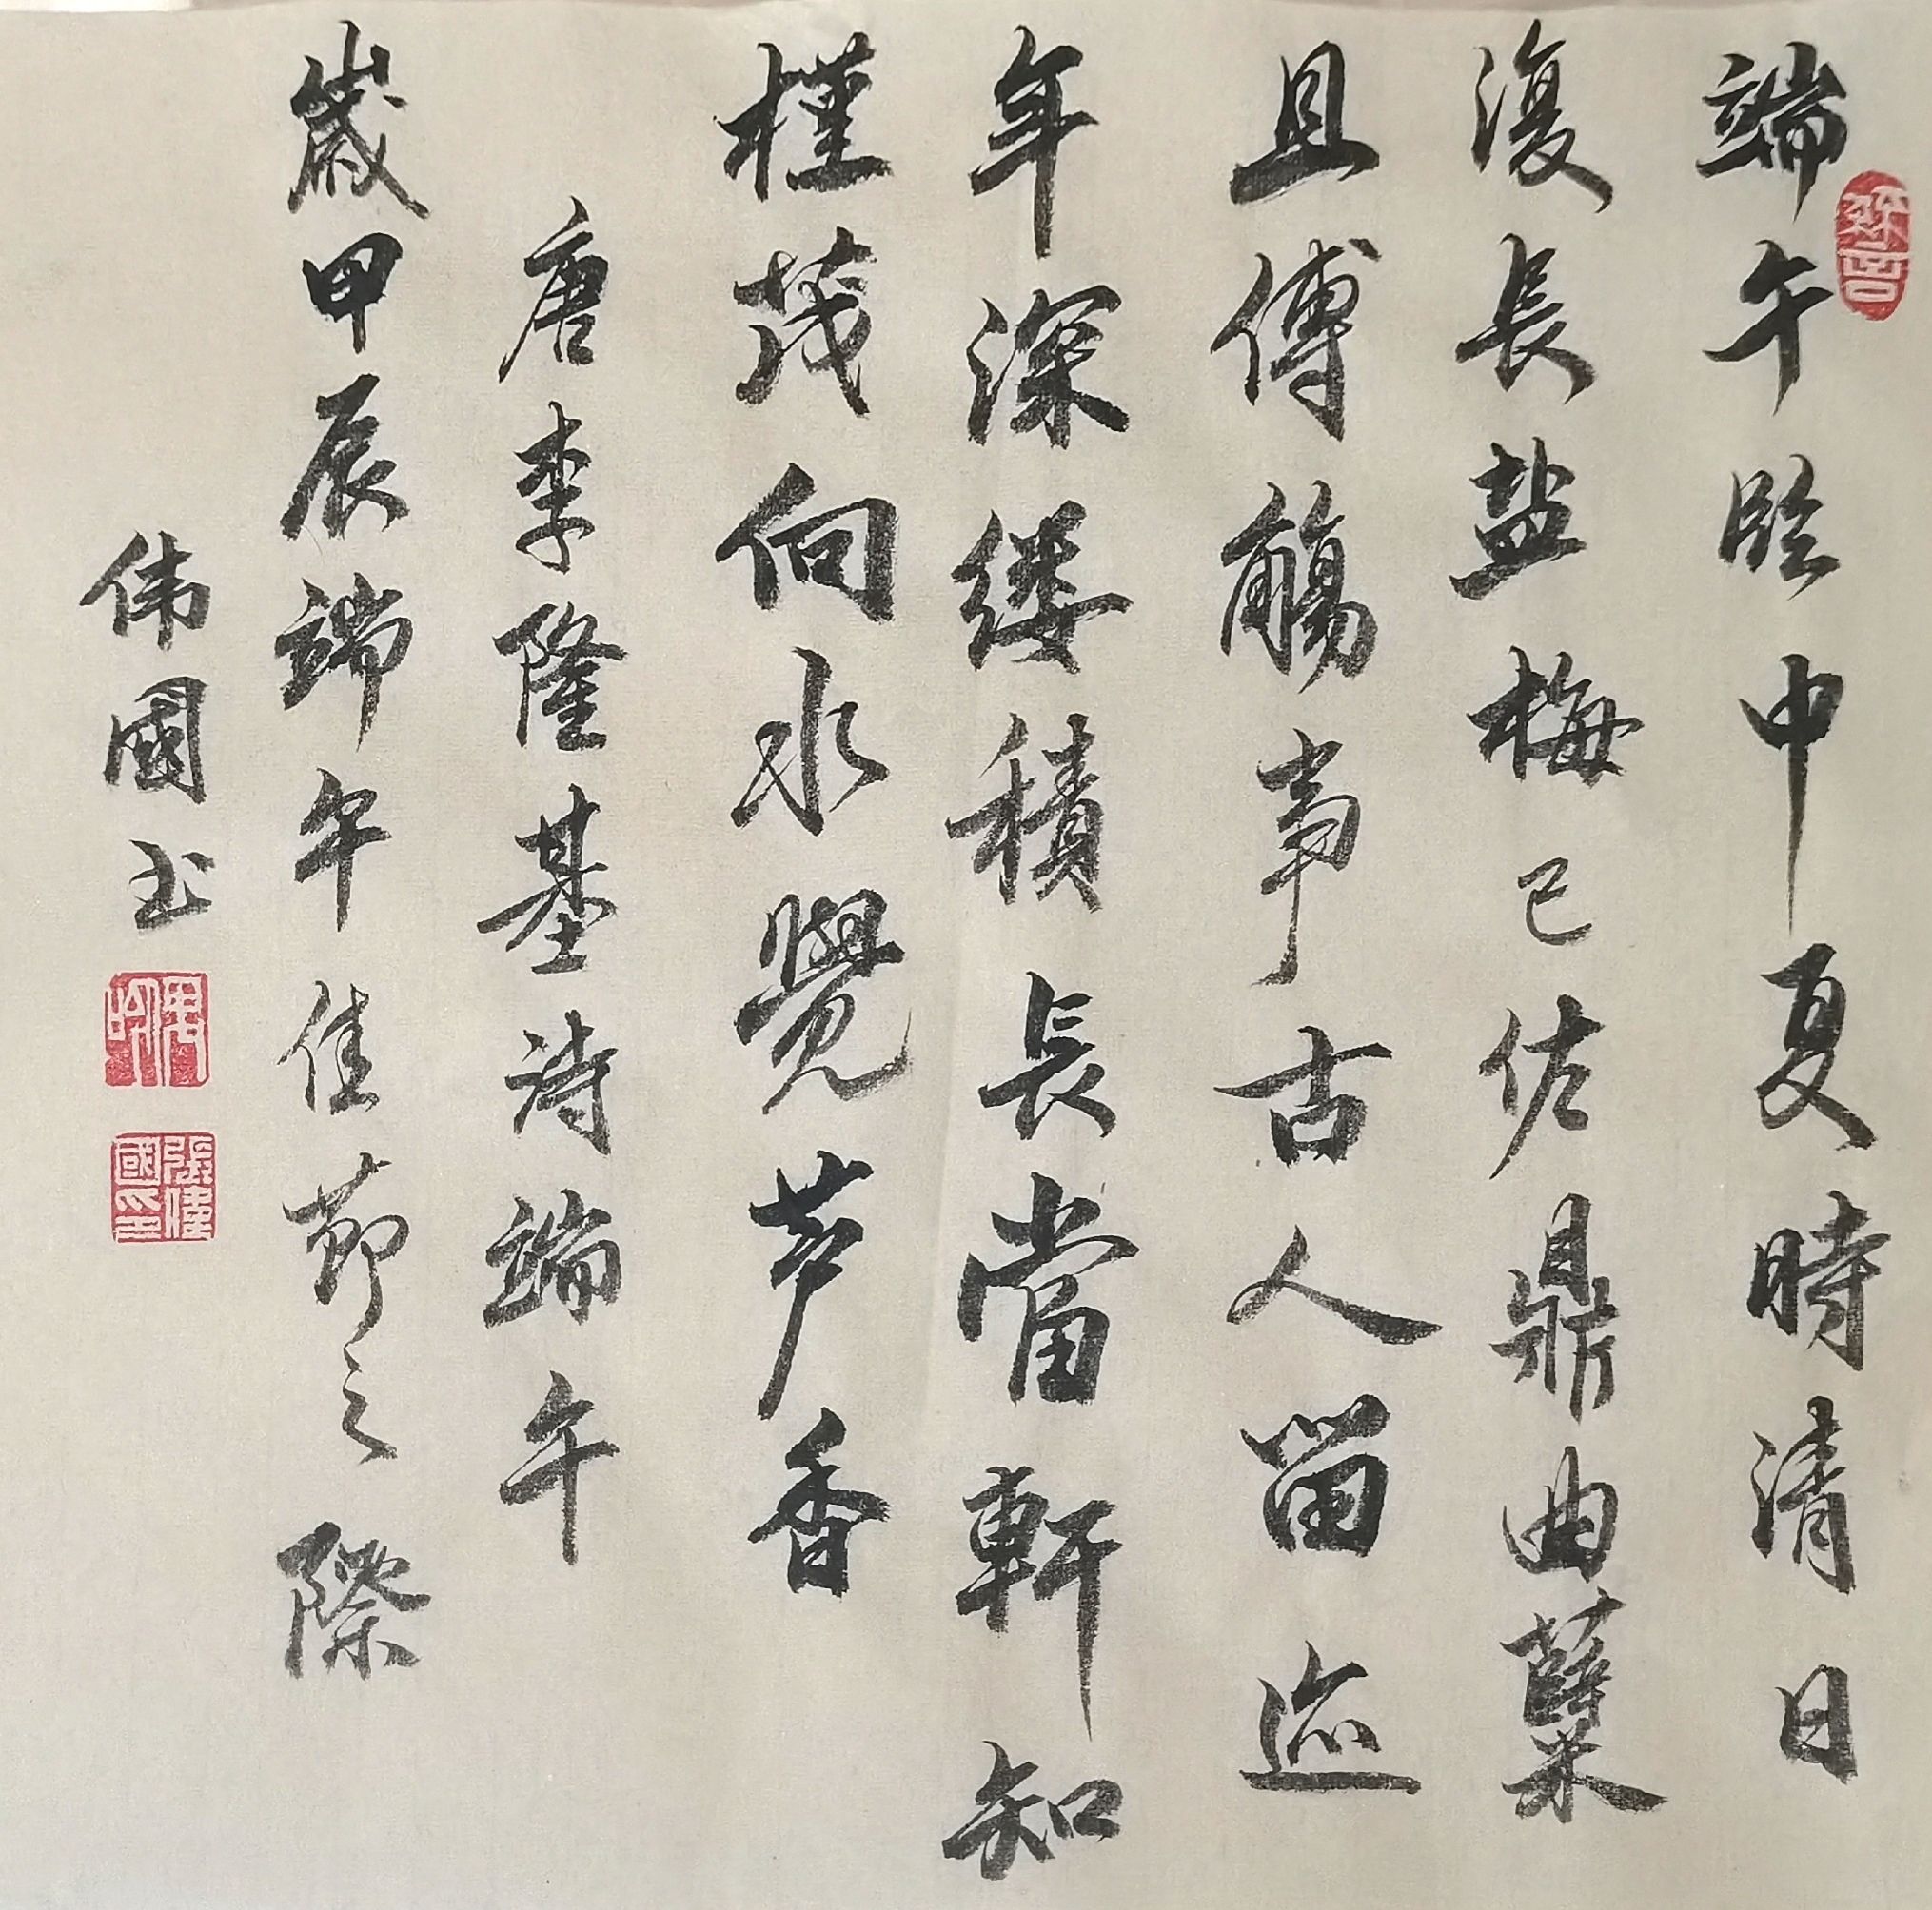 端午临中夏時清日
復長盐梅已佐鼎曲蘖
且傳觴事古人留迹
年深缕積長當軒知
槿茂向水覺芦香
唐李隆基诗端午
歲甲辰端午佳节之際
伟國书
張偉國印